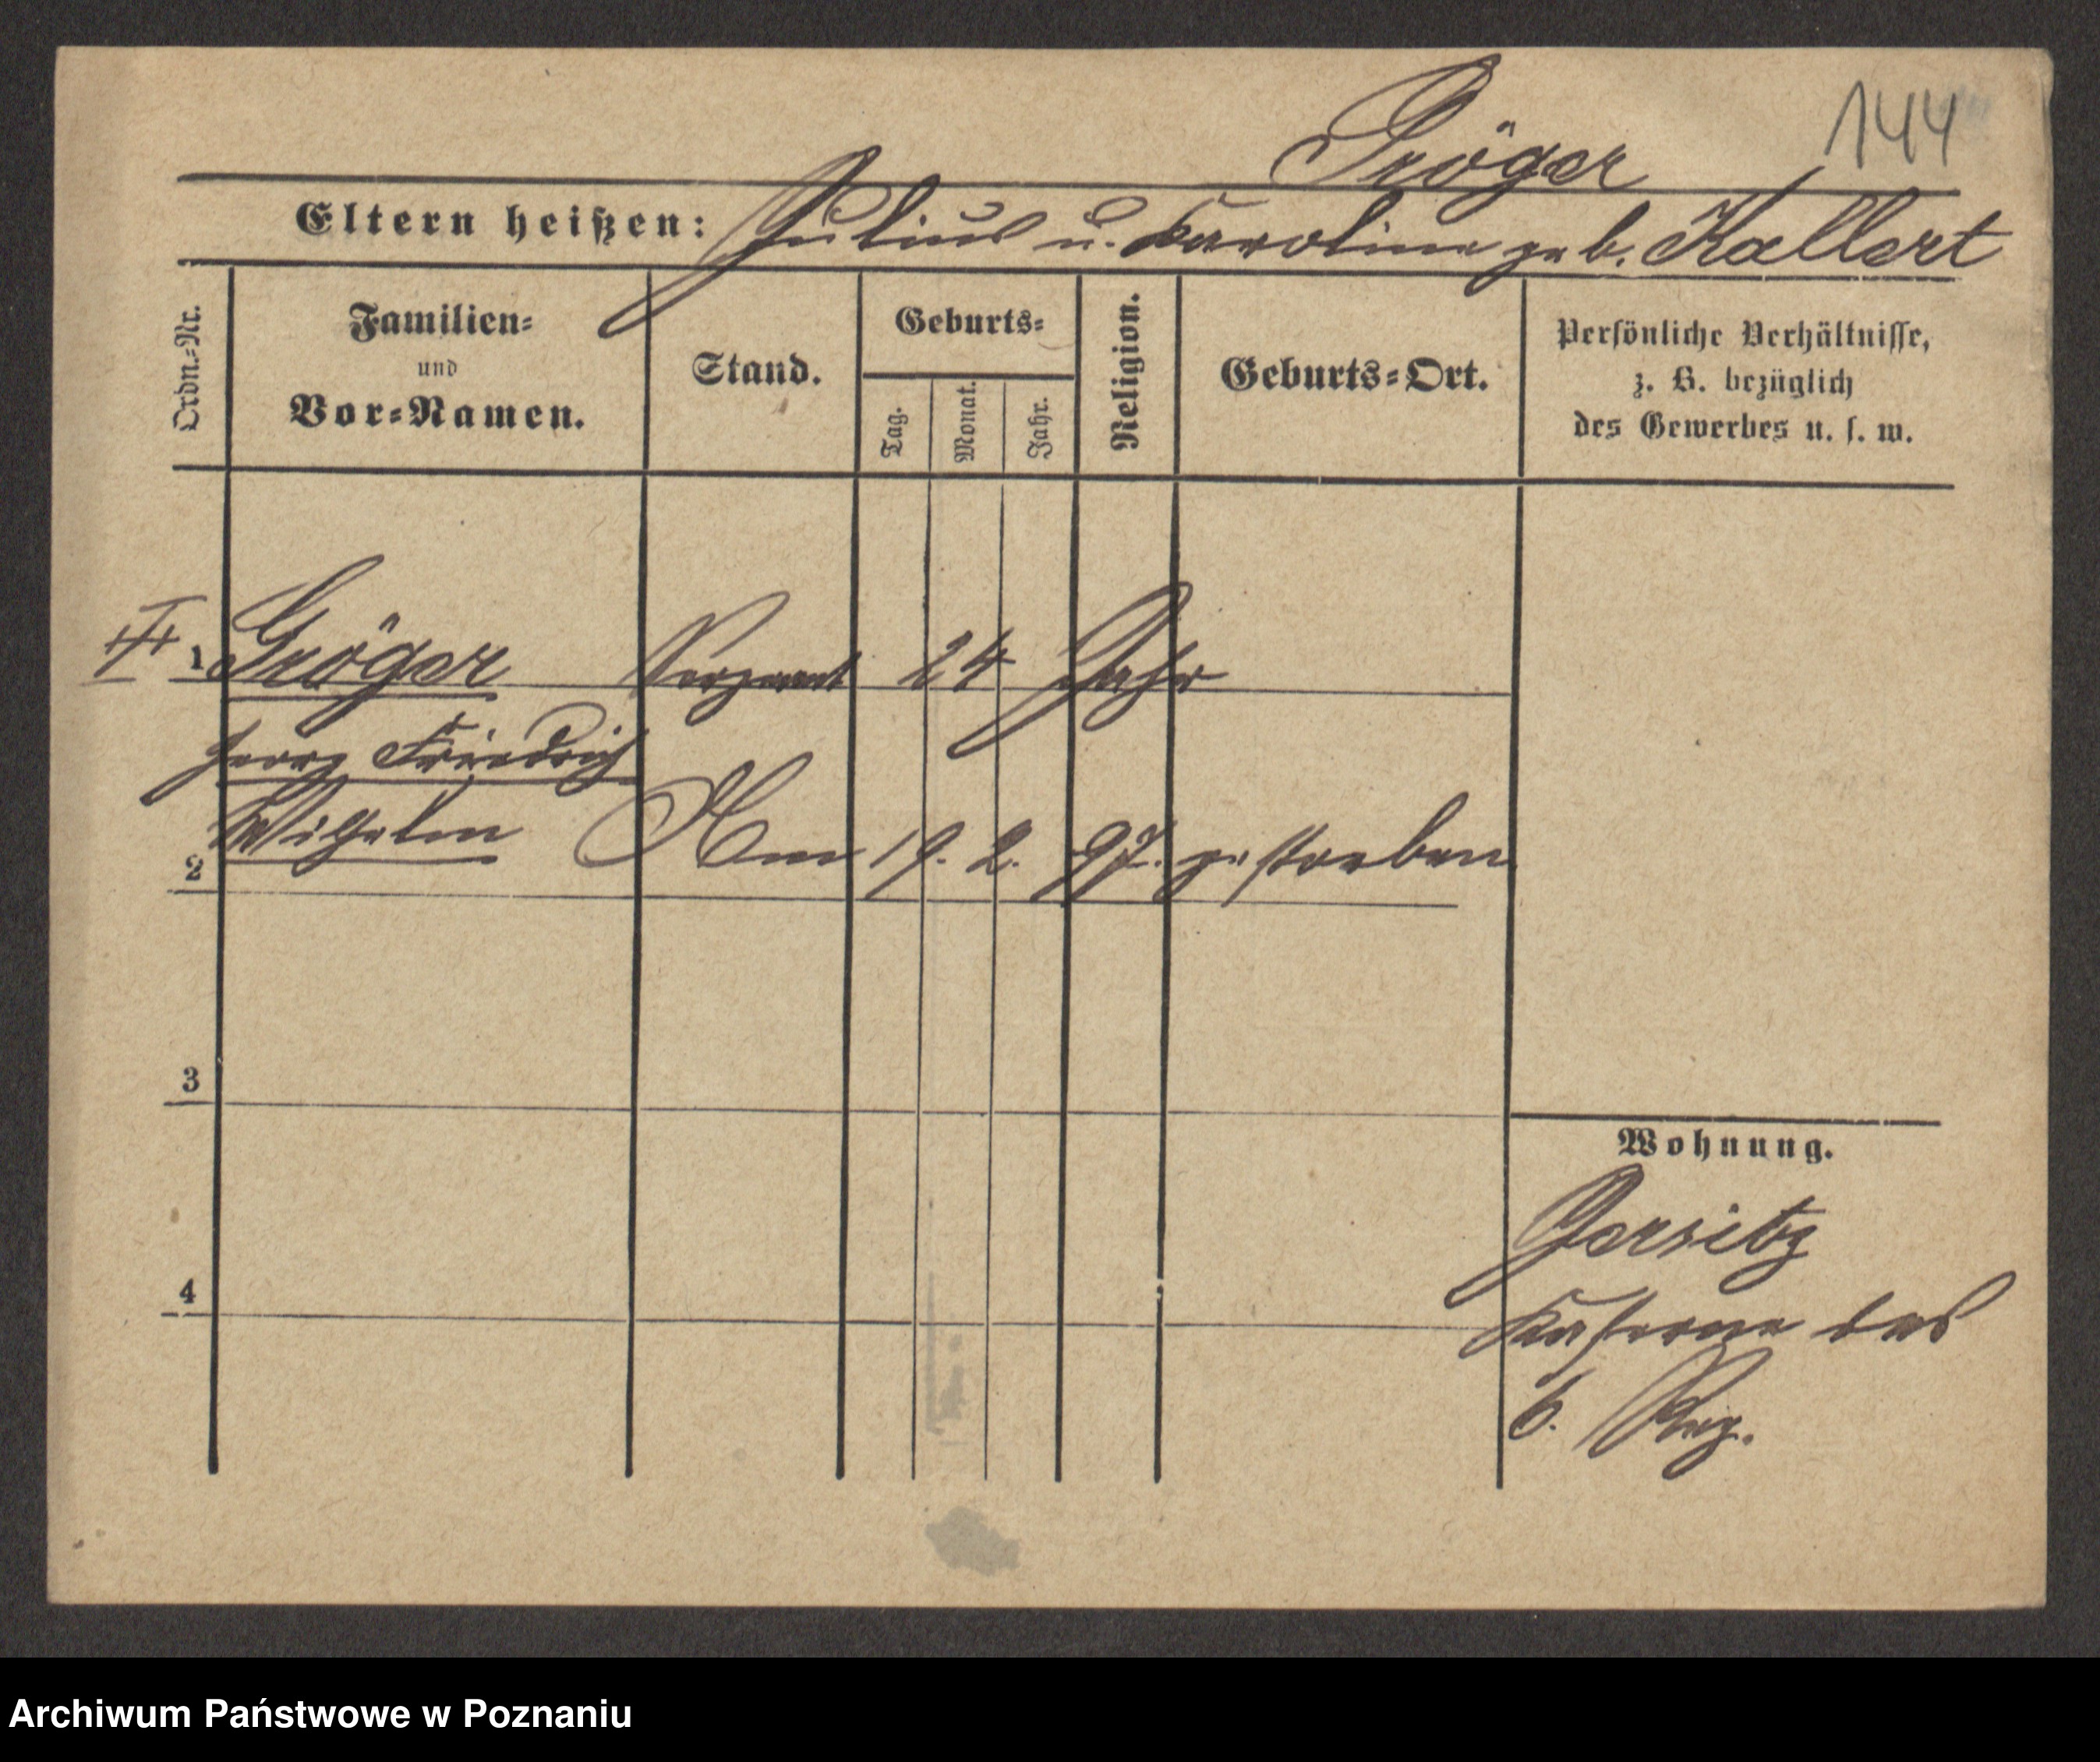 Gröger
144
Eltern heißen: Julius u. Karoline geb. Kallert
Ordn.-Nr.
Familien-
und
Vor-Namen.
Stand.
Geburts-
Tag.
Monat.
Jahr.
Religion.
Geburts-Ort.
Persönliche Verhältnisse,
z. B. bezüglich
des Gewerbes u. s. w.
1 Gröger Sergeant 24 Jahr
Friedrich
Wilhelm Am 19. 2. 97. gestorben
2
3
4
Wohnung.
Jersitz
Kaserne des
6. Reg.
Archiwum Państwowe w Poznaniu